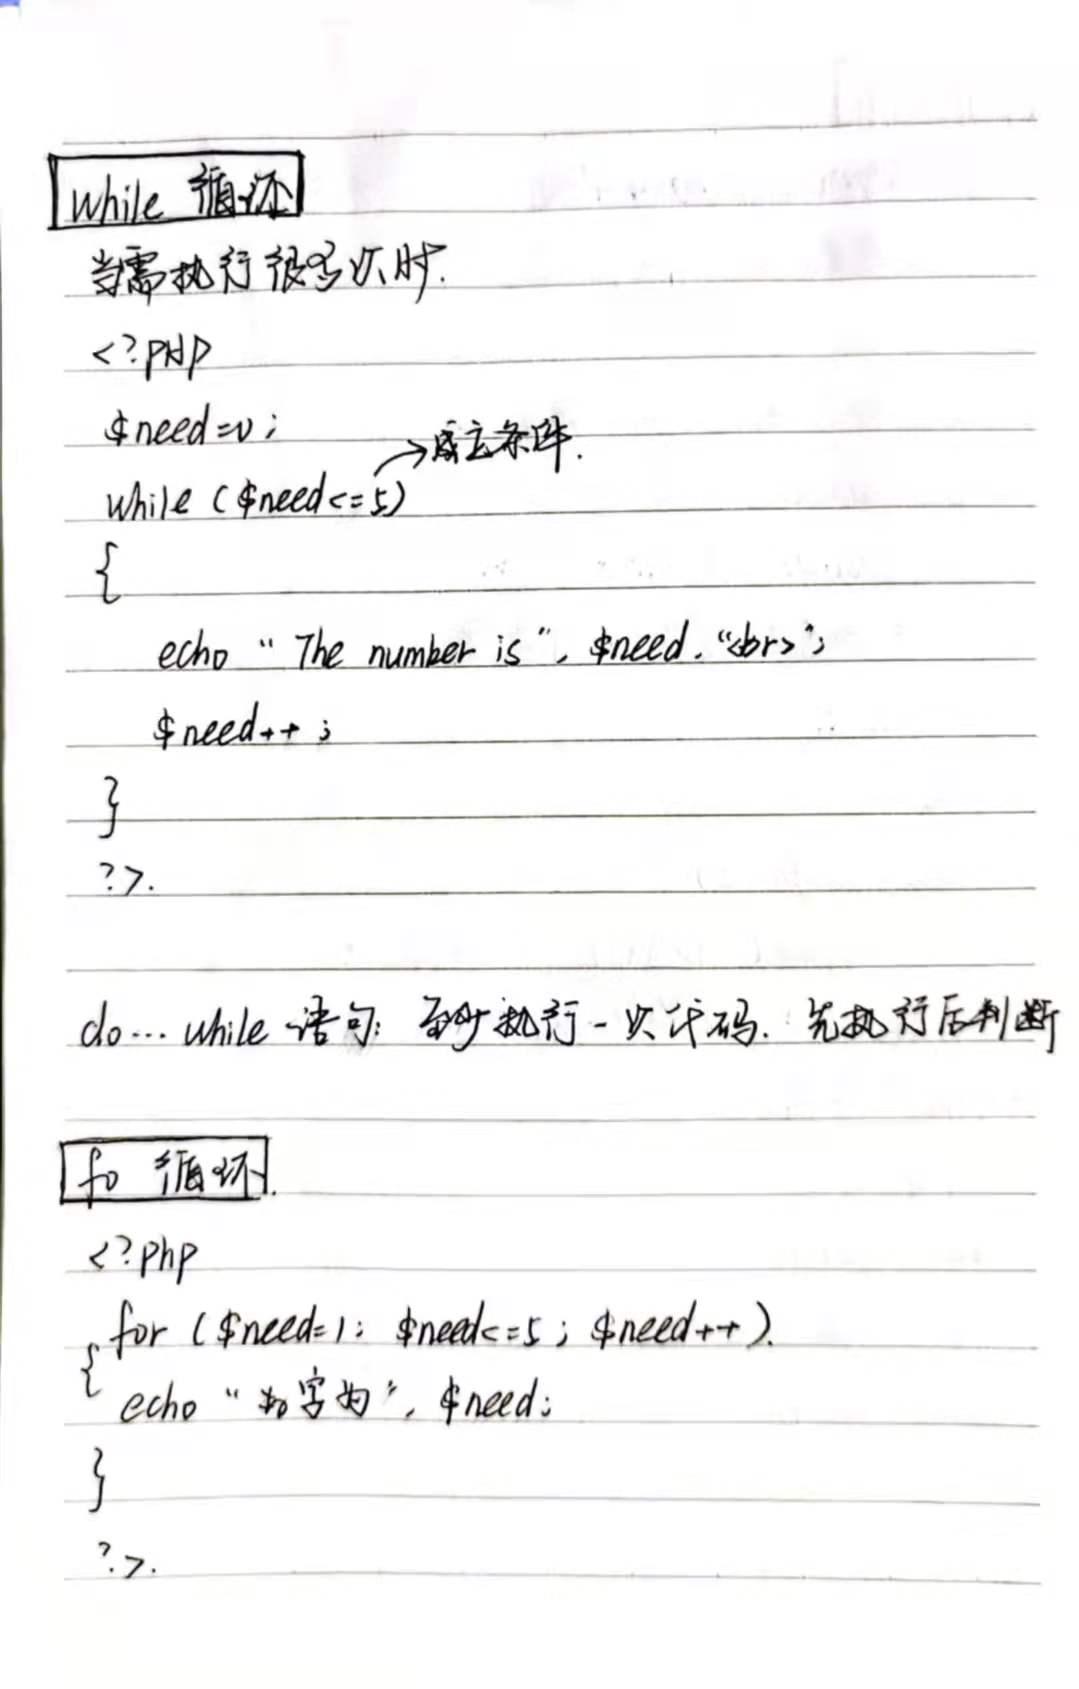 while 循环
当需执行很多次时.
<?PHP
$need=0;
→成立条件.
while ($need<=5)
{
echo “The number is”, $need. “<br>”;
$need++;
}
?>.
do... while 语句: 至少执行一次代码. 先执行后判断
fo 循环.
<?php
for ($need=1; $need<=5; $need++).
{
echo “数字为”, $need;
}
?>.